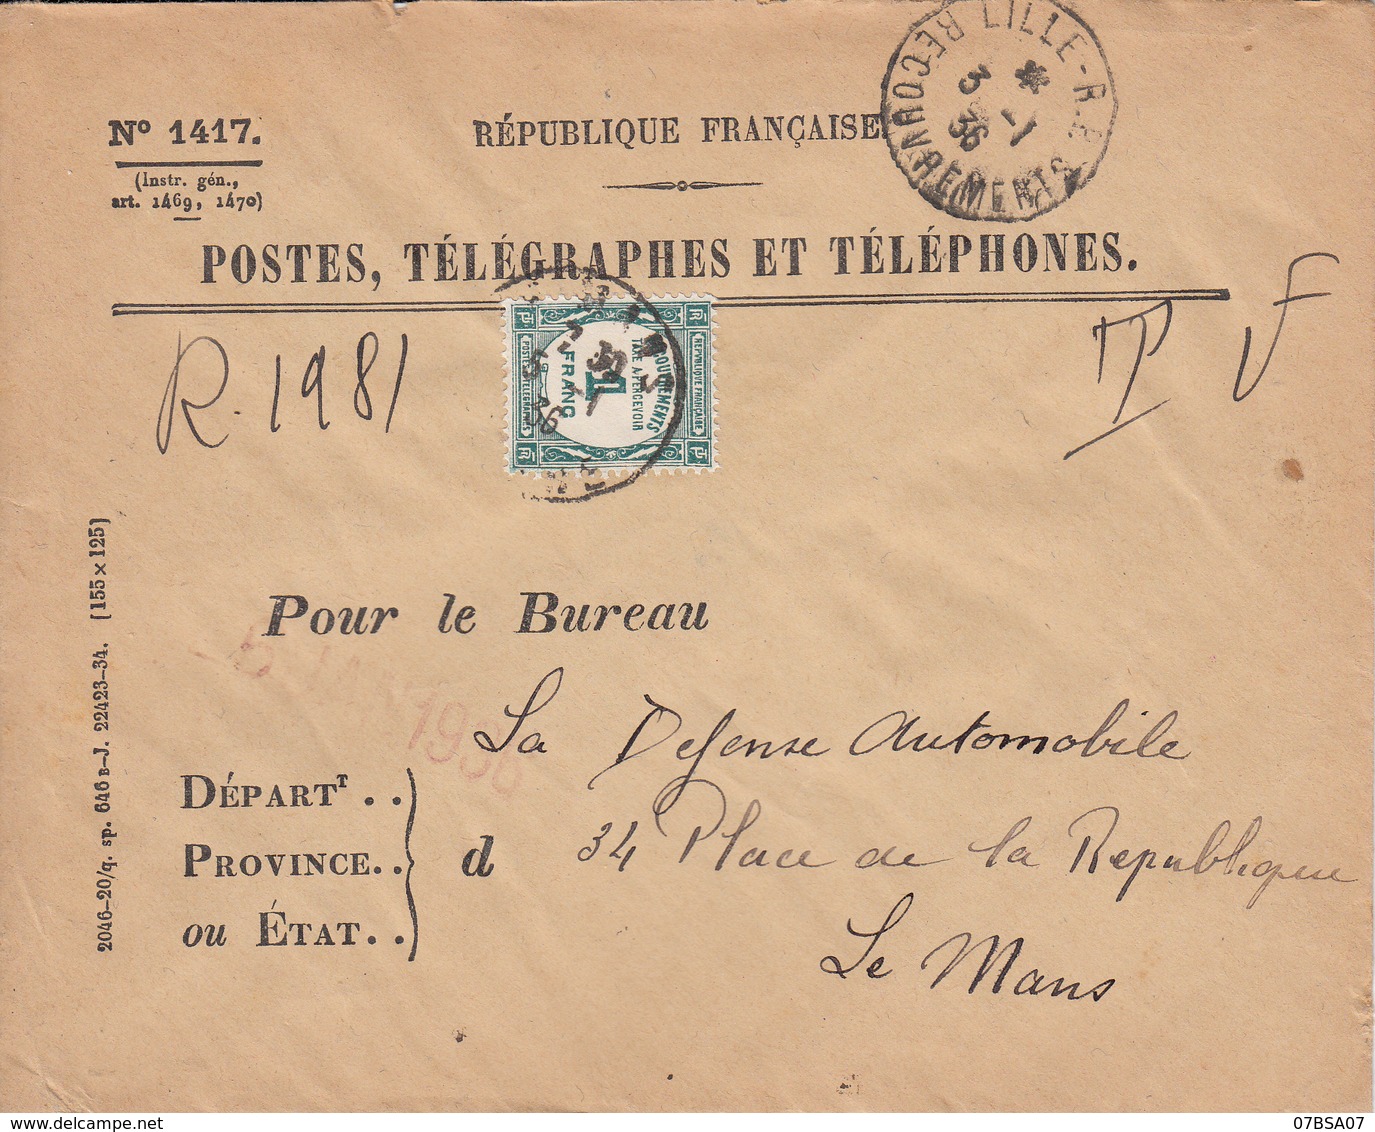 LILLE-R.P.
RECOUVREMENTS
3 *
-1
36
Nº 1417.
(Instr. gén.,
art. 1469, 1470)
RÉPUBLIQUE FRANÇAISE
POSTES, TÉLÉGRAPHES ET TÉLÉPHONES.
R. 1981
T F
RECOUVREMENTS
TAXE A PERCEVOIR
1
FRANC
REPUBLIQUE FRANÇAISE
POSTES ET TELEGRAPHES
Pour le Bureau
1936
La Defense Automobile
DÉPARTT . .
PROVINCE. .
ou ÉTAT. .
d
34 Place de la Republique
Le Mans
2046-20/q. sp. 646 B-J. 22423-34. [155 x 125]
07BSA07